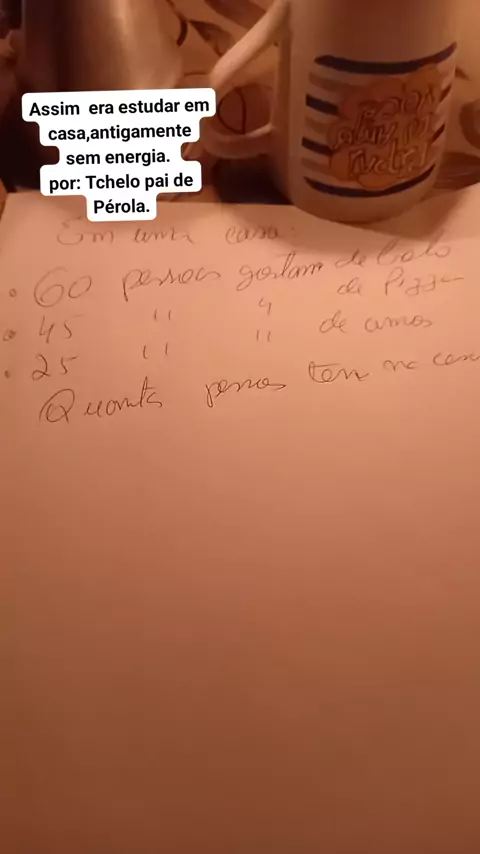 Assim era estudar em
casa,antigamente
sem energia.
por: Tchelo pai de
Pérola.
Em uma casa:
• 60 pessoas gostam de bolo
• 45 " " de Pizza
• 25 " " de amos
Quantas pessoas tem na casa